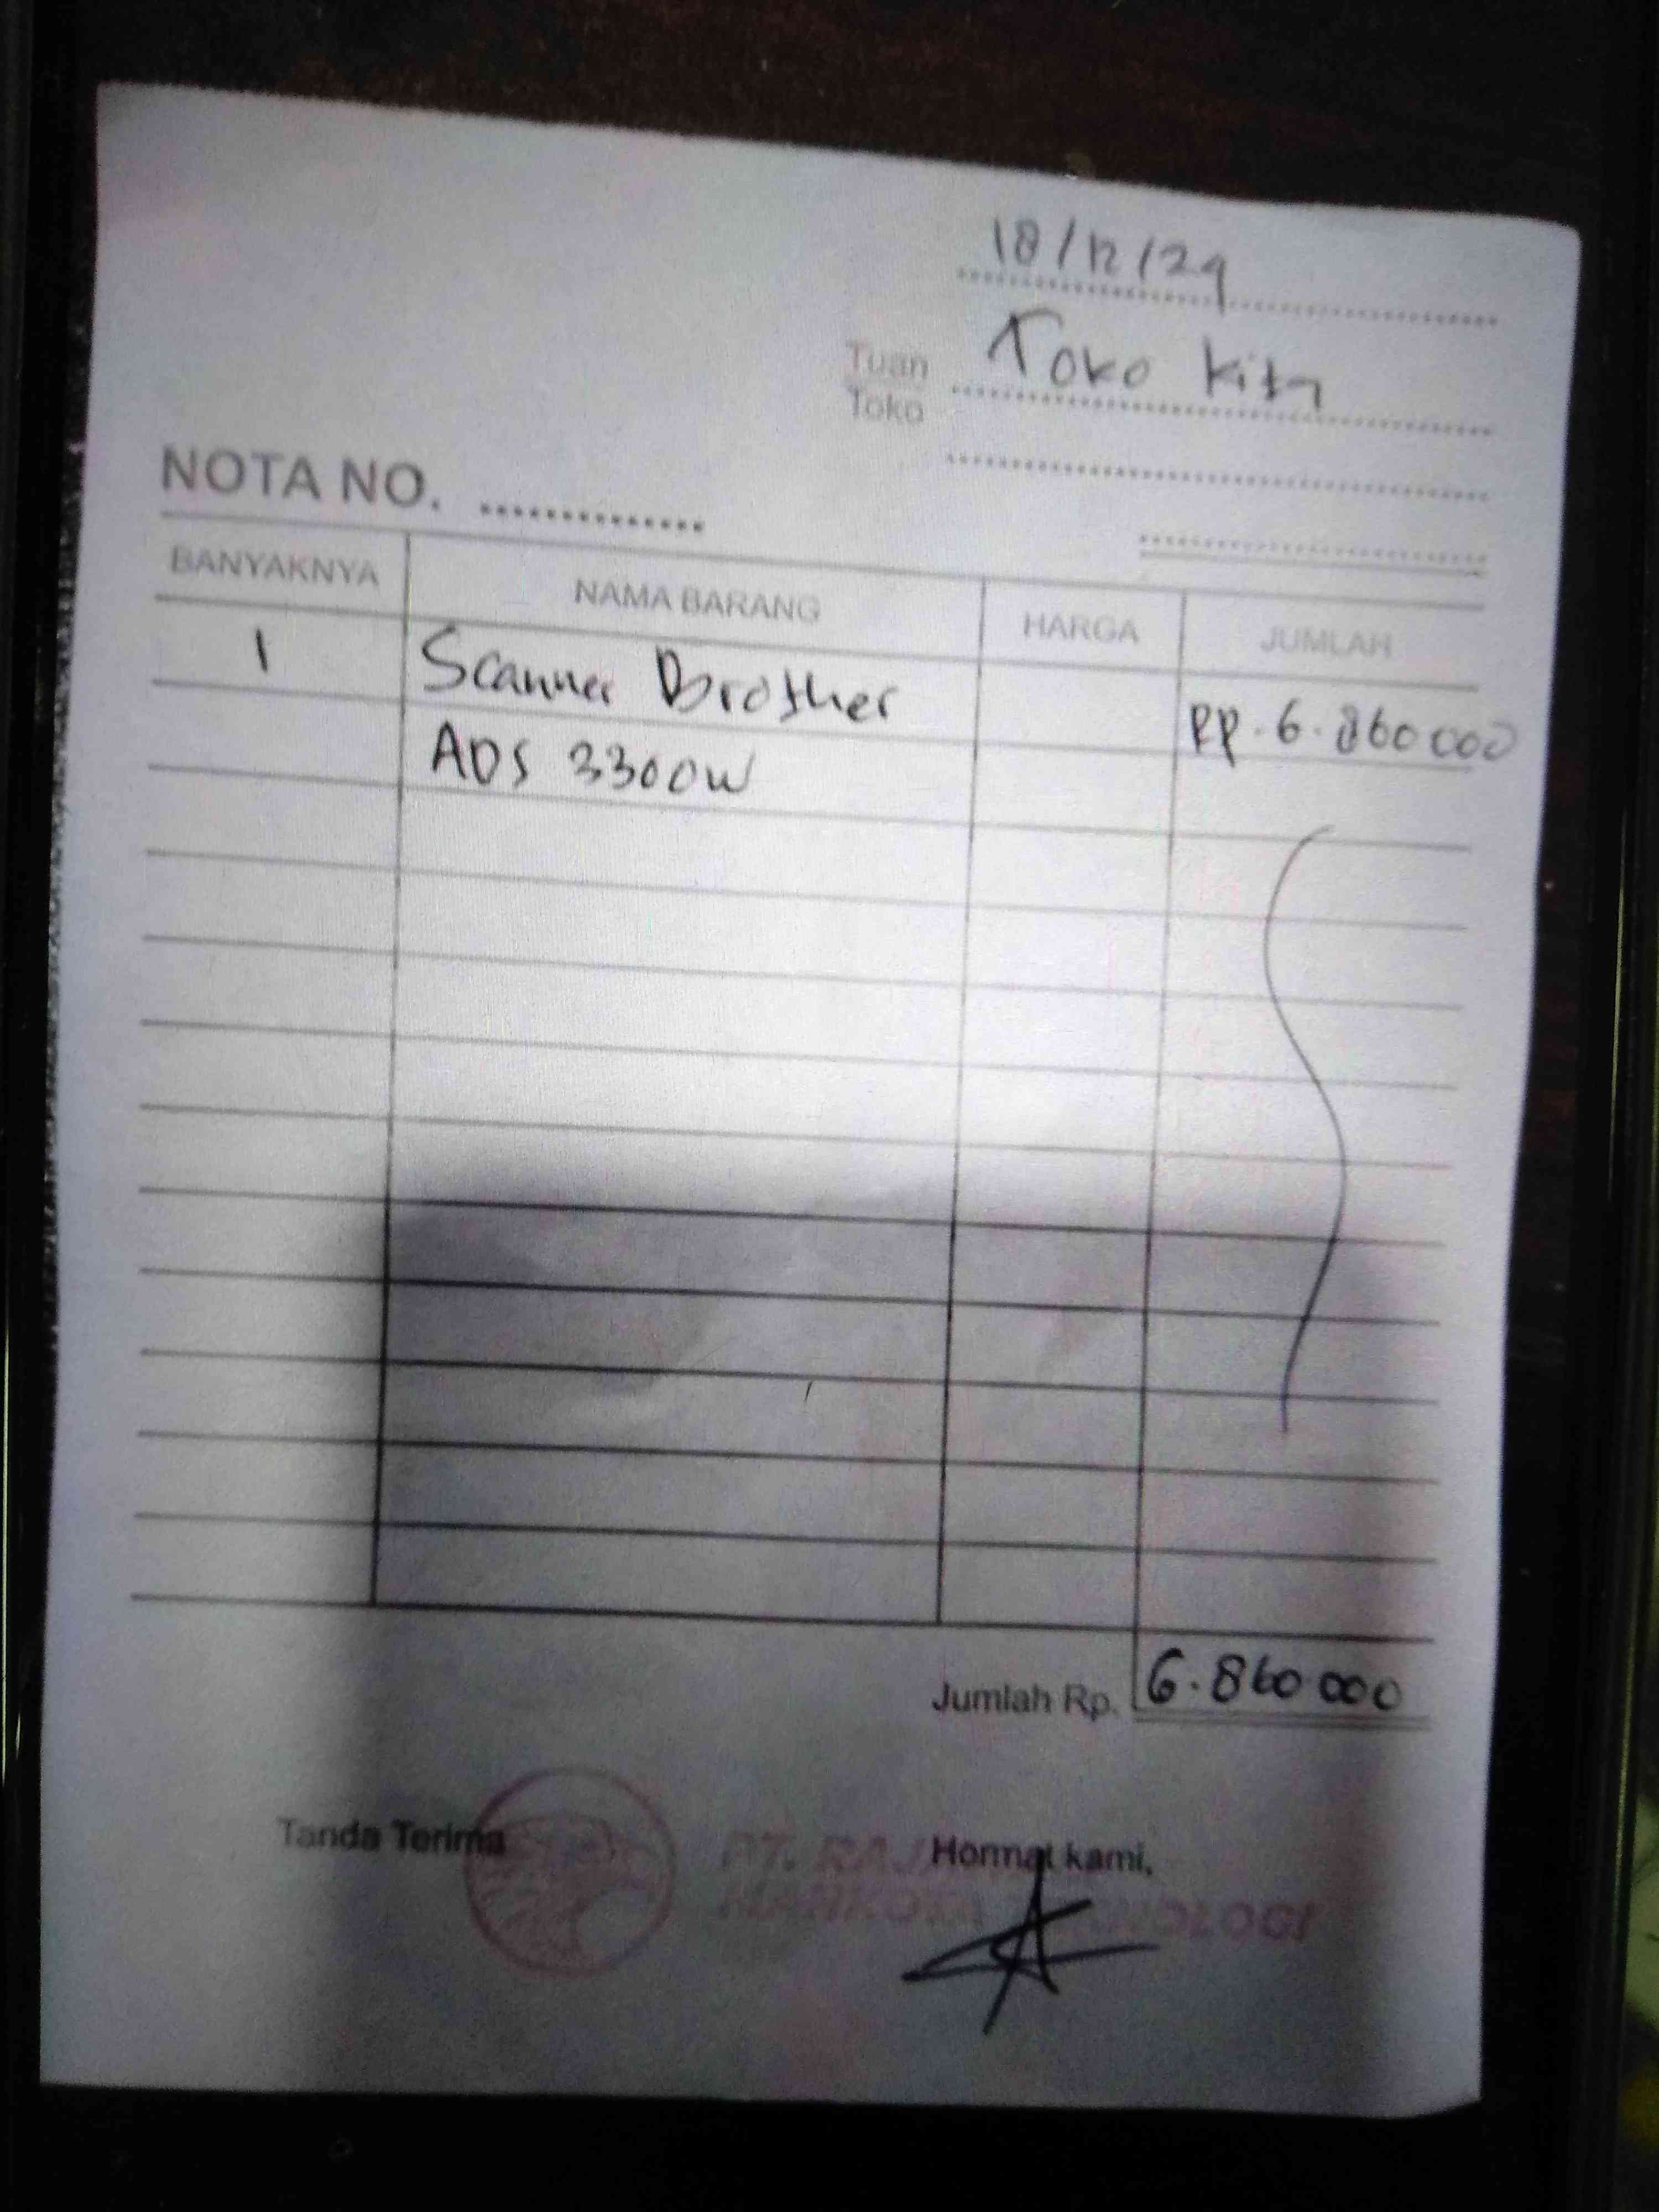 18/12/24
Tuan Toko Kita
Toko
NOTA NO.
BANYAKNYA NAMA BARANG HARGA JUMLAH
1 Scanner Brother RP. 6.860000
ADS 3300W
Jumlah Rp. 6.860.000
Tanda Terima Hormat kami,
PT. RAJ
OLOGI